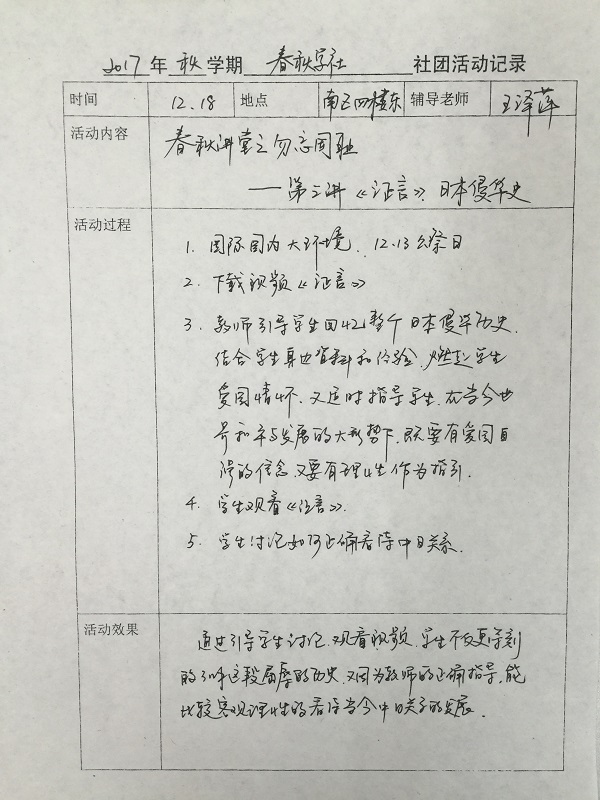 2017年 秋 学期 春秋学社 社团活动记录
时间 12.18 地点 南区四楼东 辅导老师 王泽萍
活动内容 春秋讲堂之勿忘国耻
——第三讲《证言》、日本侵华史
活动过程
1. 国际国内大环境、12.13公祭日
2. 下载视频《证言》
3. 教师引导学生回忆整个日本侵华历史,
结合学生身边资料和经验,燃起学生
爱国情怀,又适时指导学生,在当今世
界和平与发展的大形势下,既要有爱国自
强的信念,又要有理性作为指引.
4. 学生观看《证言》.
5. 学生讨论如何正确看待中日关系.
活动效果
通过引导学生讨论、观看视频,学生不仅更深刻
的了解这段屈辱的历史,又因为教师的正确指导,能
比较客观理性的看待当今中日关系的发展.